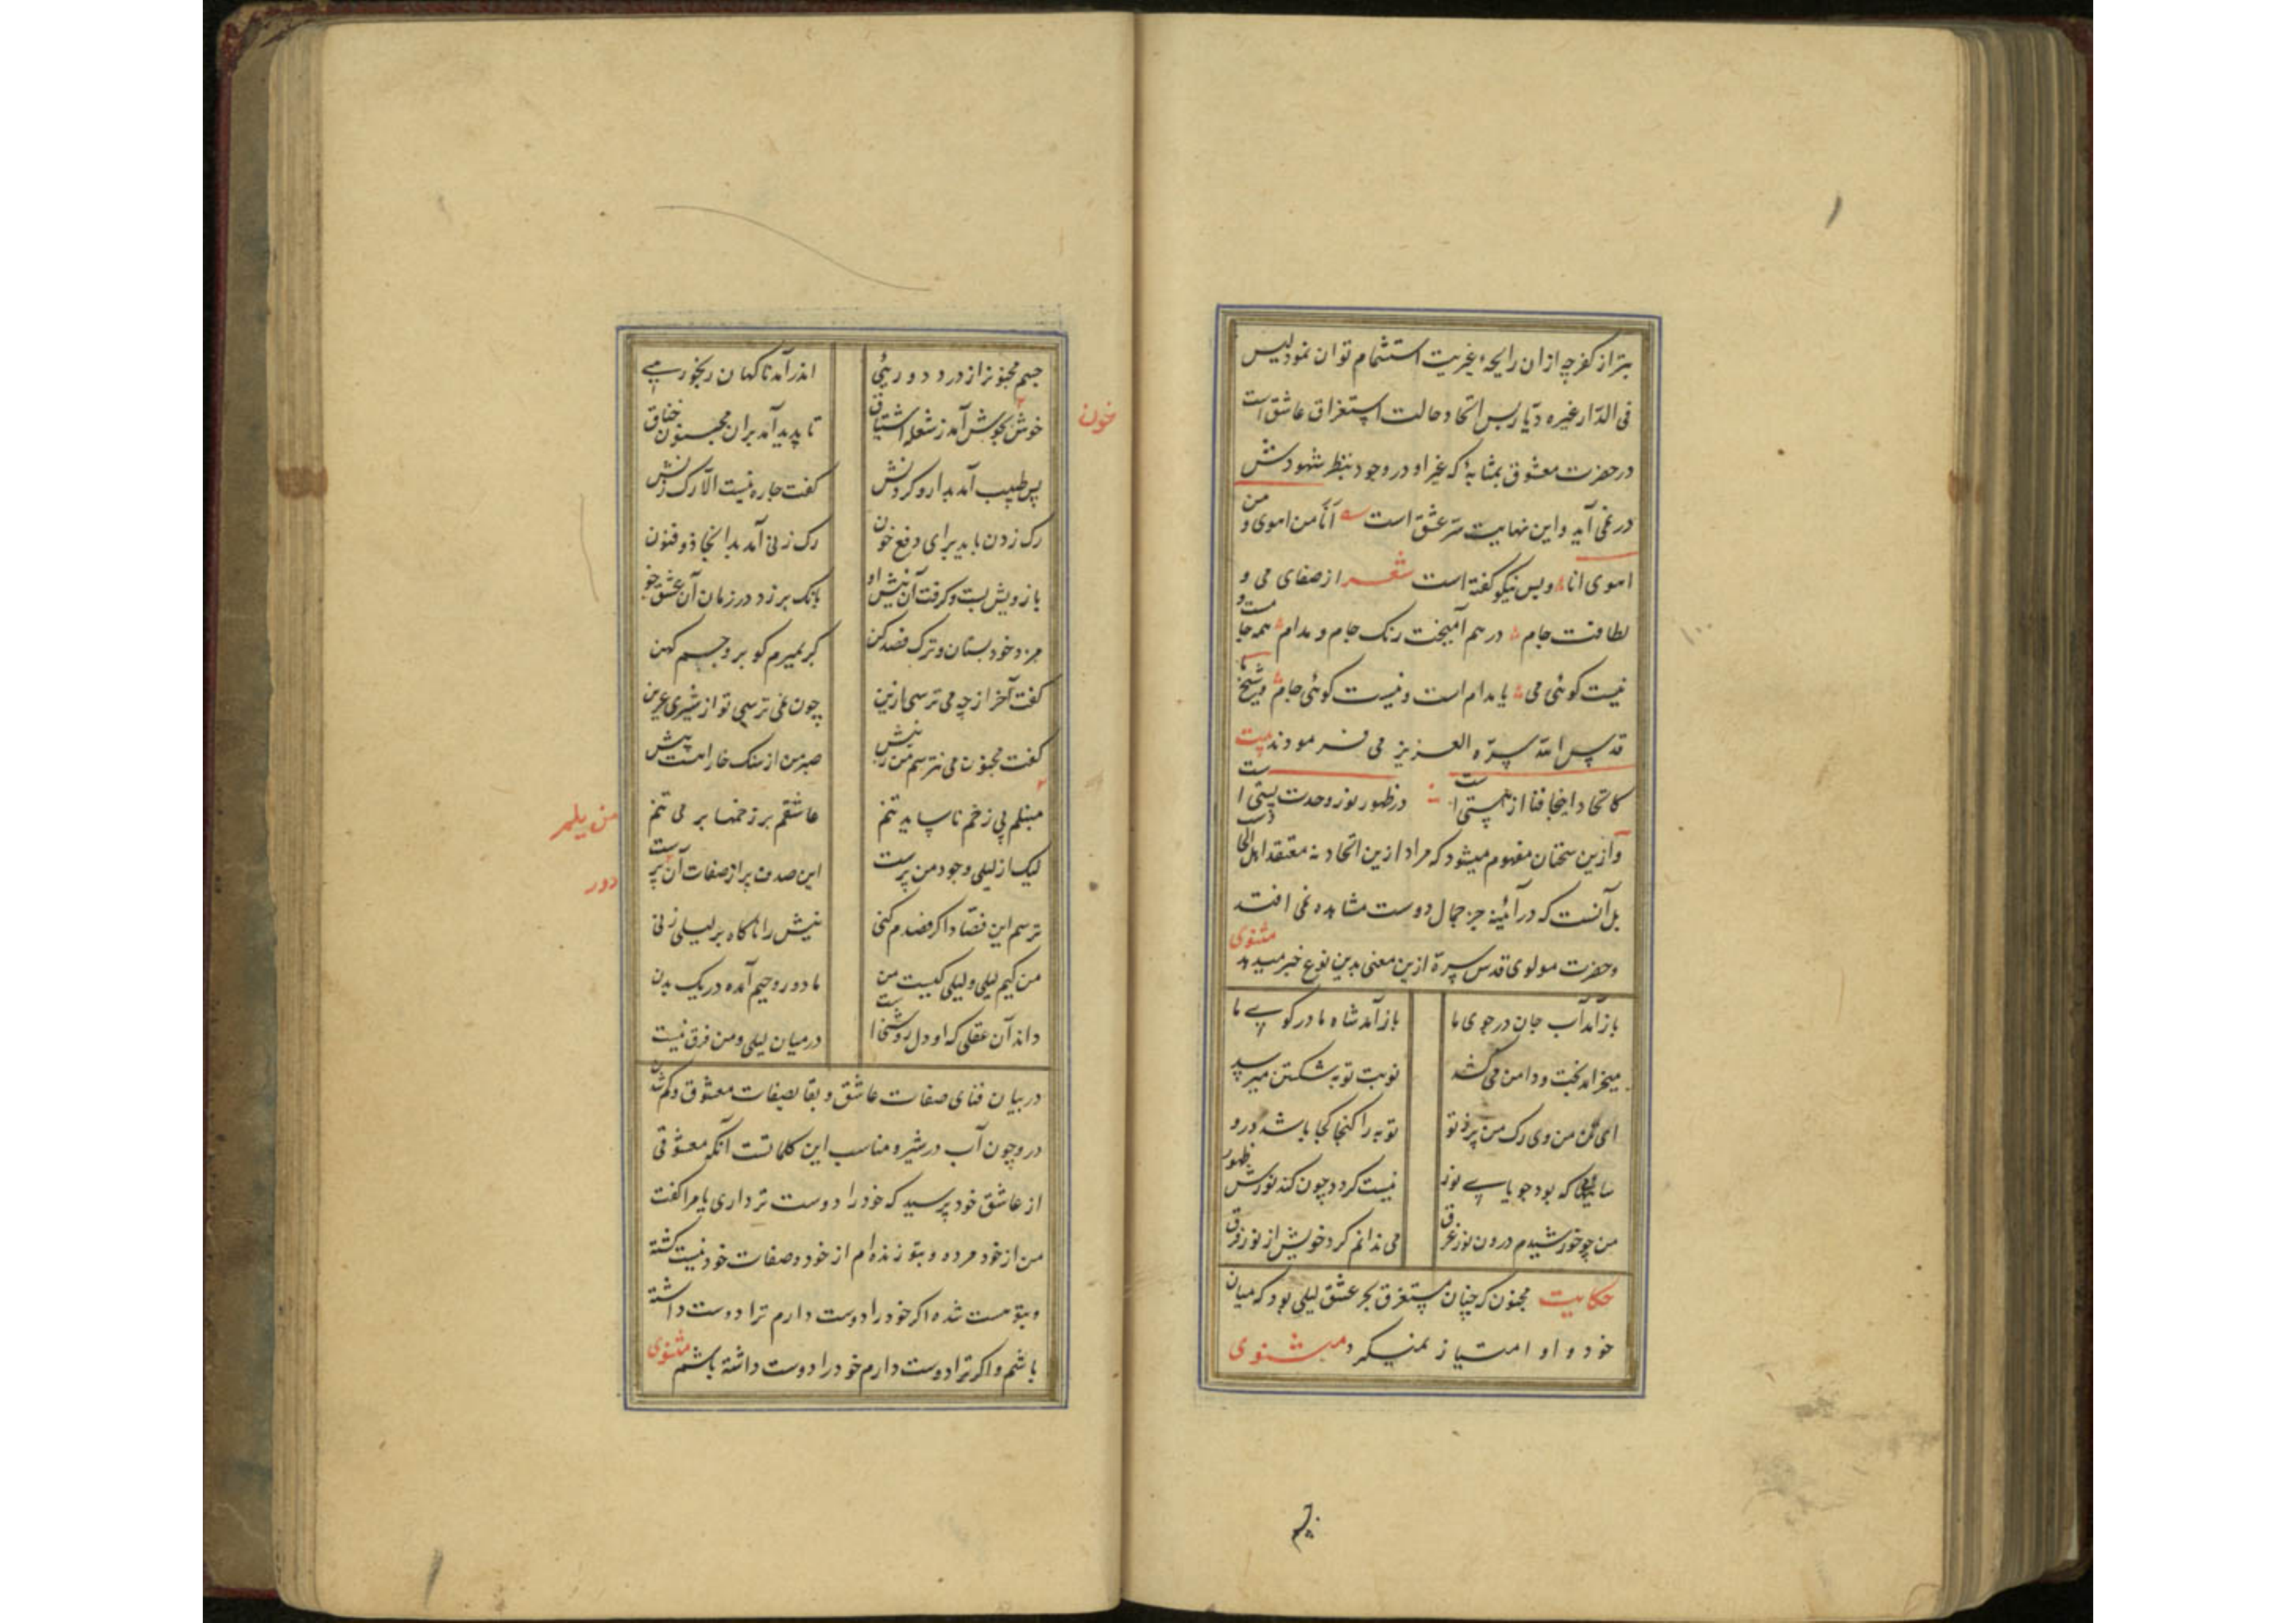 بتر از کفر چه از ان رایحهٔ غیریت استشمام توان نمود لیس
فی الدّار غیره دیّار پس اتحاد حالت استغراق عاشق است
در حضرت معشوق بمثابهٔ که غیر او در وجود بنظر شهودش
در نمی آید و این نهایت سرّ عشق است انا من اهوی و من
اهوی انا و بس نیکو گفته است شعر از صفای می و
لطافت جام در هم آمیخت رنک جام و مدام همه جامست و
نیست کوئی می یا مدام است و نیست کوئی جام و شیخ ما
قدس الله سرّه العزیز می فرمودند بیت
کاتحاد اینجا فنا از هستی است در ظهور نور وحدت پستی است
و ازین سخنان مفهوم میشود که مراد ازین اتحاد نه معتقد اهل الحاد است
بل آنست که در آئینه جز جمال دوست مشاهده نمی افتد
و حضرت مولوی قدس سرّه ازین معنی بدین نوع خبر میدهد مثنوی
باز آمد آب جان در جوی ما باز آمد شاه ما در کوی ما
میخرامد بخت و دامن می کشد نوبت توبه شکستن میرسد
ای تن من وی رک من پر ز تو توبه را کنجا کجا باشد درو
سایهٔ که بود جویای نور نیست کردد چون کند نورش ظهور
من چو خورشیدم درون نور غرق می ندانم کرد خویش از نور فرق
حکایت مجنون که چنان مستغرق بحر عشق لیلی بود که میان
خود و او امتیاز نمیکرد مثنوی
جسم مجنون را ز درد دوریئی اندر آمد ناکهان رنجوریی
خوش بجوش آمد ز شعله اشتیاق تا پدید آمد بران مجنون خناق
خون
پس طبیب آمد بدارو کردنش کفت چاره نیست الا رک زنش
رک زدن باید برای دفع خون رک زنی آمد بدانجا ذو فنون
بازویش بست و کرفت آن نیش او بانک بر زد در زمان آن عشق خو
مزد خود بستان و ترک فصد کن کر بمیرم کو برو جسم کهن
کفت آخر از چه می ترسی ازین چون نمی ترسی تو از شیر عرین
کفت مجنون می نترسم من ز نیش صبر من از سنک خارا هست پیش
منبلم بی زخم ناساید تنم عاشقم بر زخمها بر می تنم
لیک از لیلی وجود من پرست این صدف پر از صفات آن پرست
در
ترسم این فصّاد اکر فصدم کنی نیش را ناکاه بر لیلی زنی
من کیم لیلی و لیلی کیست من ما دو روحیم آمده در یک بدن
داند آن عقلی که او دل روشنی است در میان لیلی و من فرق نیست
در بیان فنای صفات عاشق و بقا بصفات معشوق و کم شدن
در و چون آب در شیر و مناسب این کلماتست آنکه معشوقی
از عاشق خود پرسید که خود را دوست تر داری یا مرا کفت
من از خود مرده و بتو زنده ام از خود و صفات خود نیست کشته
و بتو هست شده اکر خود را دوست دارم ترا دوست داشته
باشم و اکر ترا دوست دارم خود را دوست داشته باشم مثنوی